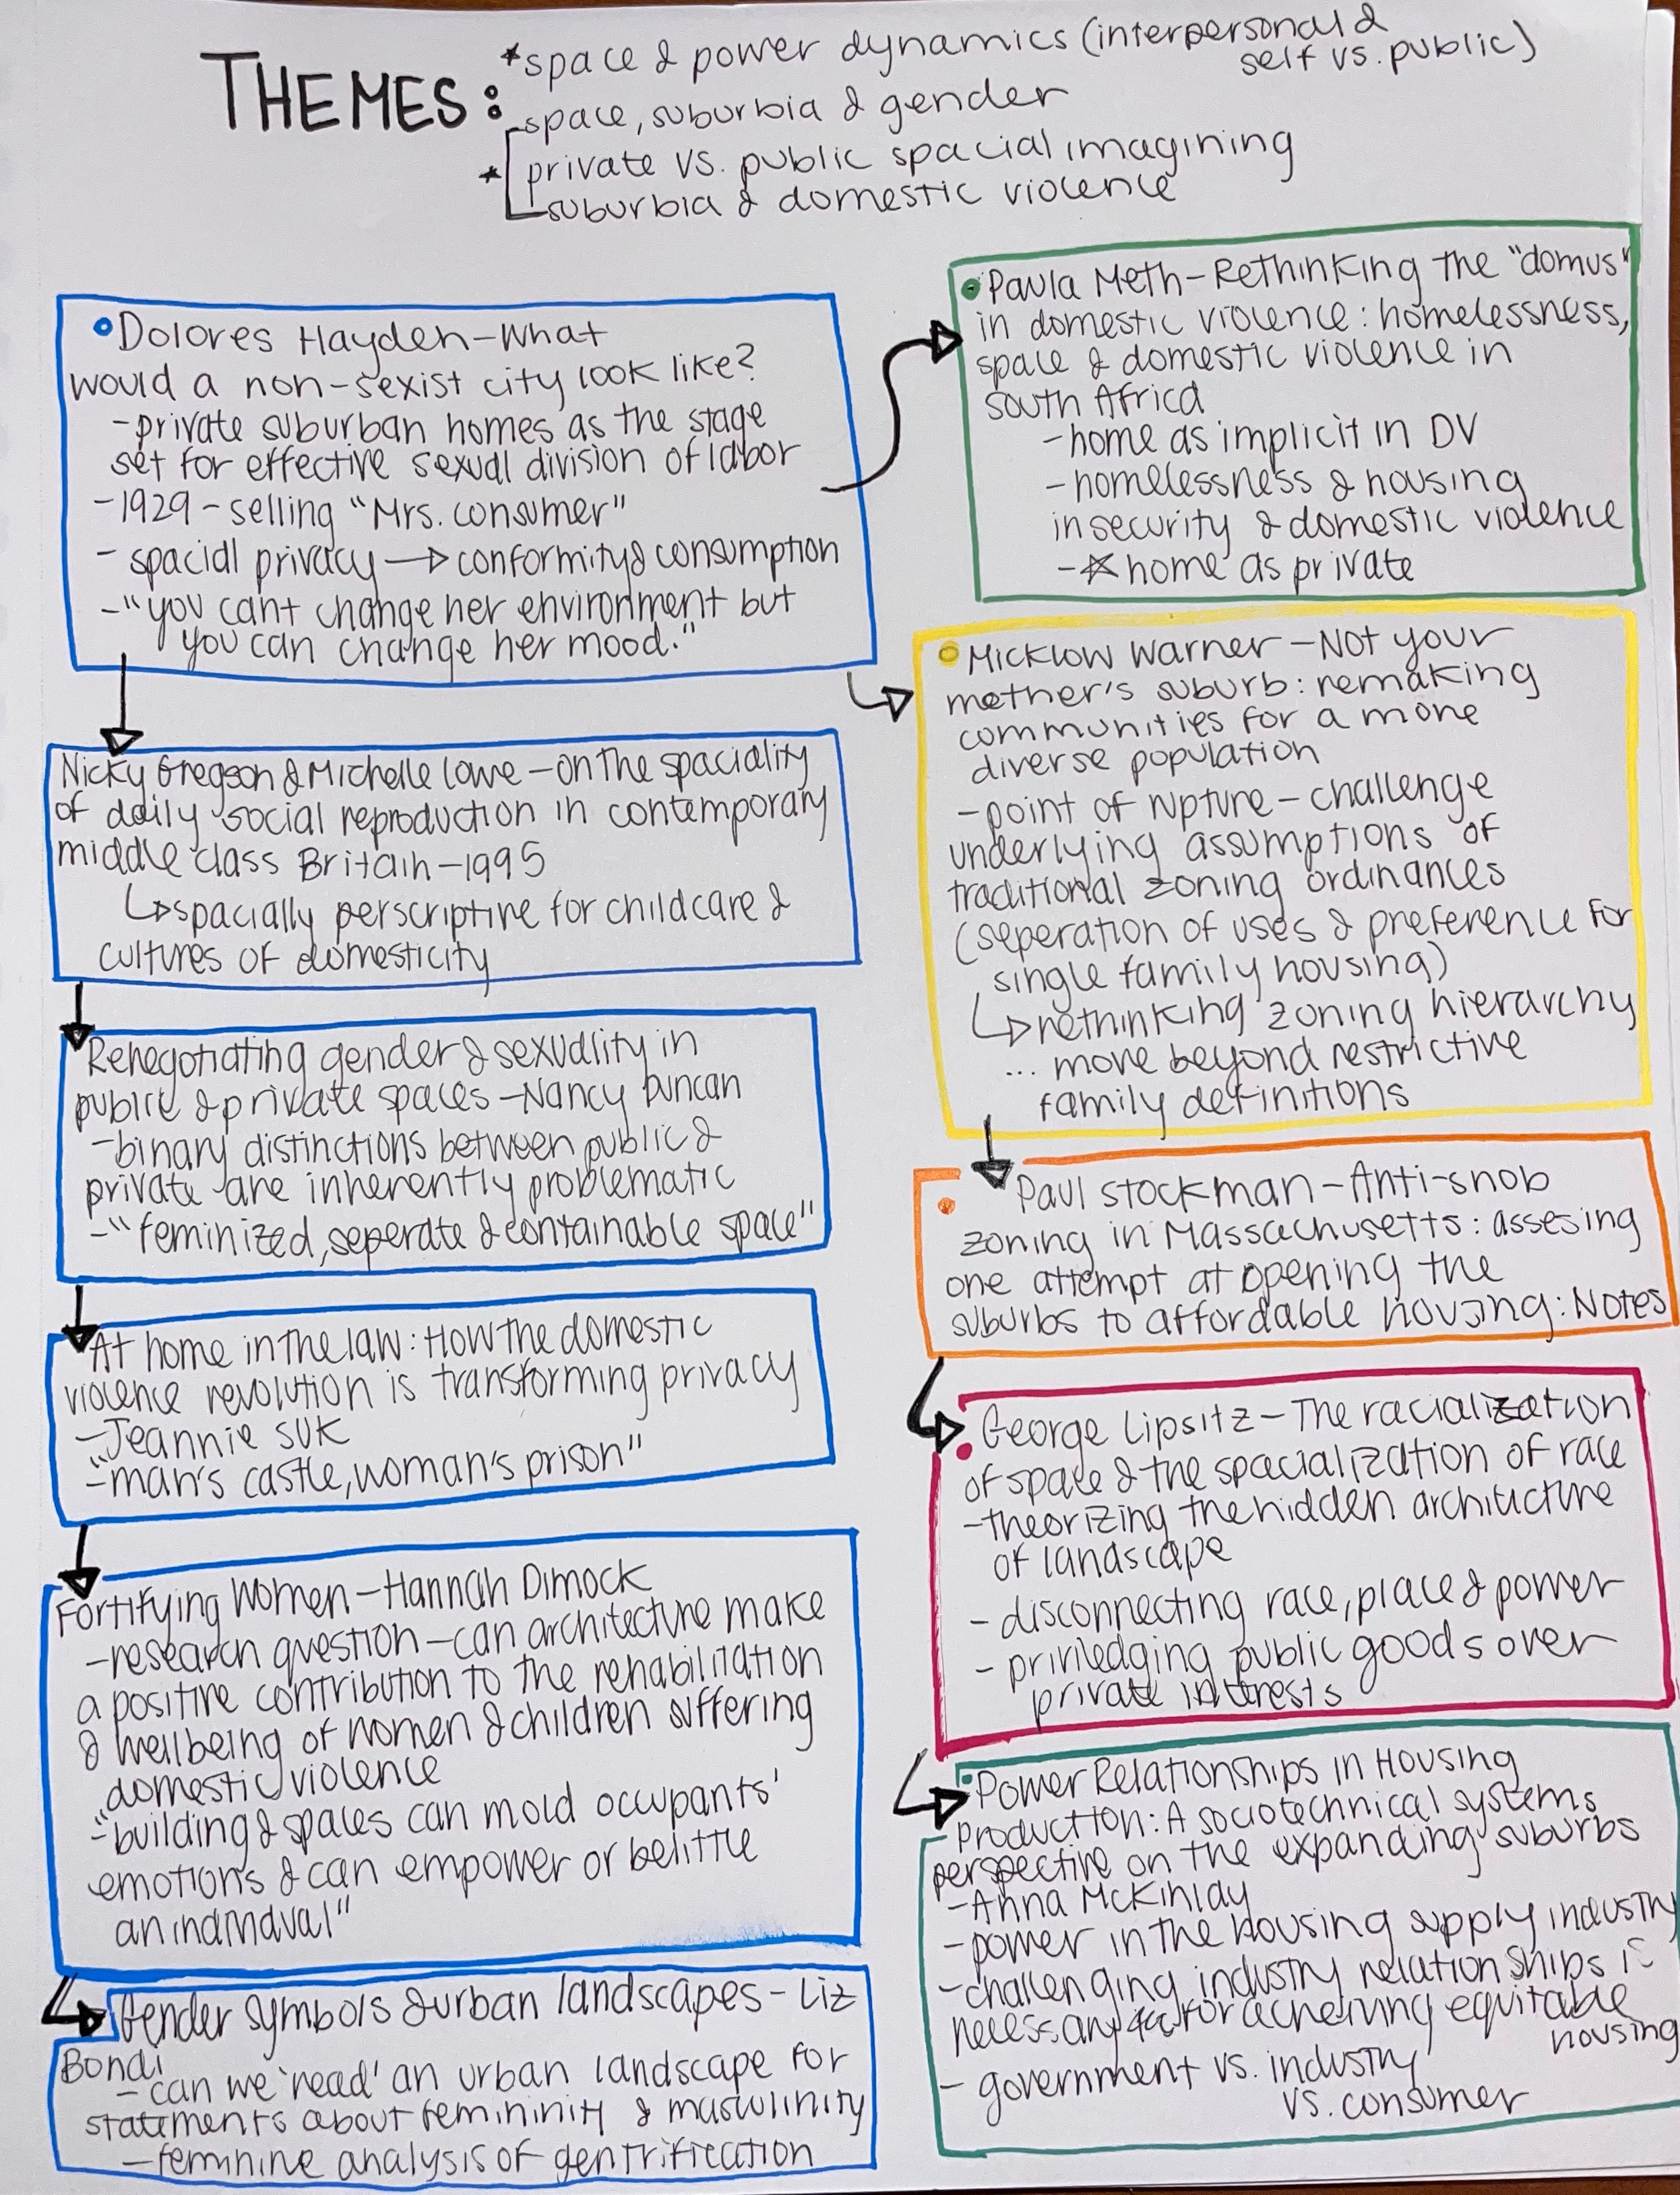 THEMES:
*space & power dynamics (interpersonal &
self vs. public)
space, suburbia & gender
* private vs. public spacial imagining
suburbia & domestic violence
Dolores Hayden-What
would a non-sexist city look like?
-private suburban homes as the stage
set for effective sexual division of labor
-1929-selling "Mrs. consumer"
- spacial privacy → conformity & consumption
-"you cant change her environment but
you can change her mood."
Nicky Gregson & Michelle Lowe-on the spaciality
of daily social reproduction in contemporary
middle class Britain-1995
↳spacially perscriptive for childcare &
cultures of domesticity
Renegotiating gender & sexuality in
public & private spaces-Nancy Duncan
-binary distinctions between public &
private are inherently problematic
-"feminized, seperate & containable space"
At home in the law: How the domestic
violence revolution is transforming privacy
-Jeannie Suk
-"man's castle, woman's prison"
Fortifying Women-Hannah Dimock
-research question-can architecture make
a positive contribution to the rehabilitation
& wellbeing of women & children suffering
domestic violence
-"building & spaces can mold occupants'
emotions & can empower or belittle
an individual"
Gender symbols & urban landscapes- Liz
Bondi
-can we 'read' an urban landscape for
statements about femininity & masculinity
-feminine analysis of gentrification
Paula Meth-Rethinking the "domus"
in domestic violence: homelessness,
space & domestic violence in
South Africa
-home as implicit in DV
-homelessness & housing
insecurity & domestic violence
-☆ home as private
Micklow Warner-Not your
mother's suburb: remaking
communities for a more
diverse population
-point of rupture-challenge
underlying assumptions of
traditional zoning ordinances
(seperation of uses & preference for
single family housing)
↳rethinking zoning hierarchy
... move beyond restrictive
family definitions
Paul Stockman-Anti-snob
zoning in Massachusetts: assesing
one attempt at opening the
suburbs to affordable housing: Notes
George Lipsitz-The racialization
of space & the spacialization of race
-theorizing the hidden architecture
of landscape
- disconnecting race, place & power
- priviledging public goods over
private interests
Power Relationships in Housing
production: A sociotechnical systems
perspective on the expanding suburbs
-Anna McKinlay
-power in the housing supply industry
-challenging industry relationships is
necessary for acheiving equitable
housing
- government vs. industry
vs. consumer